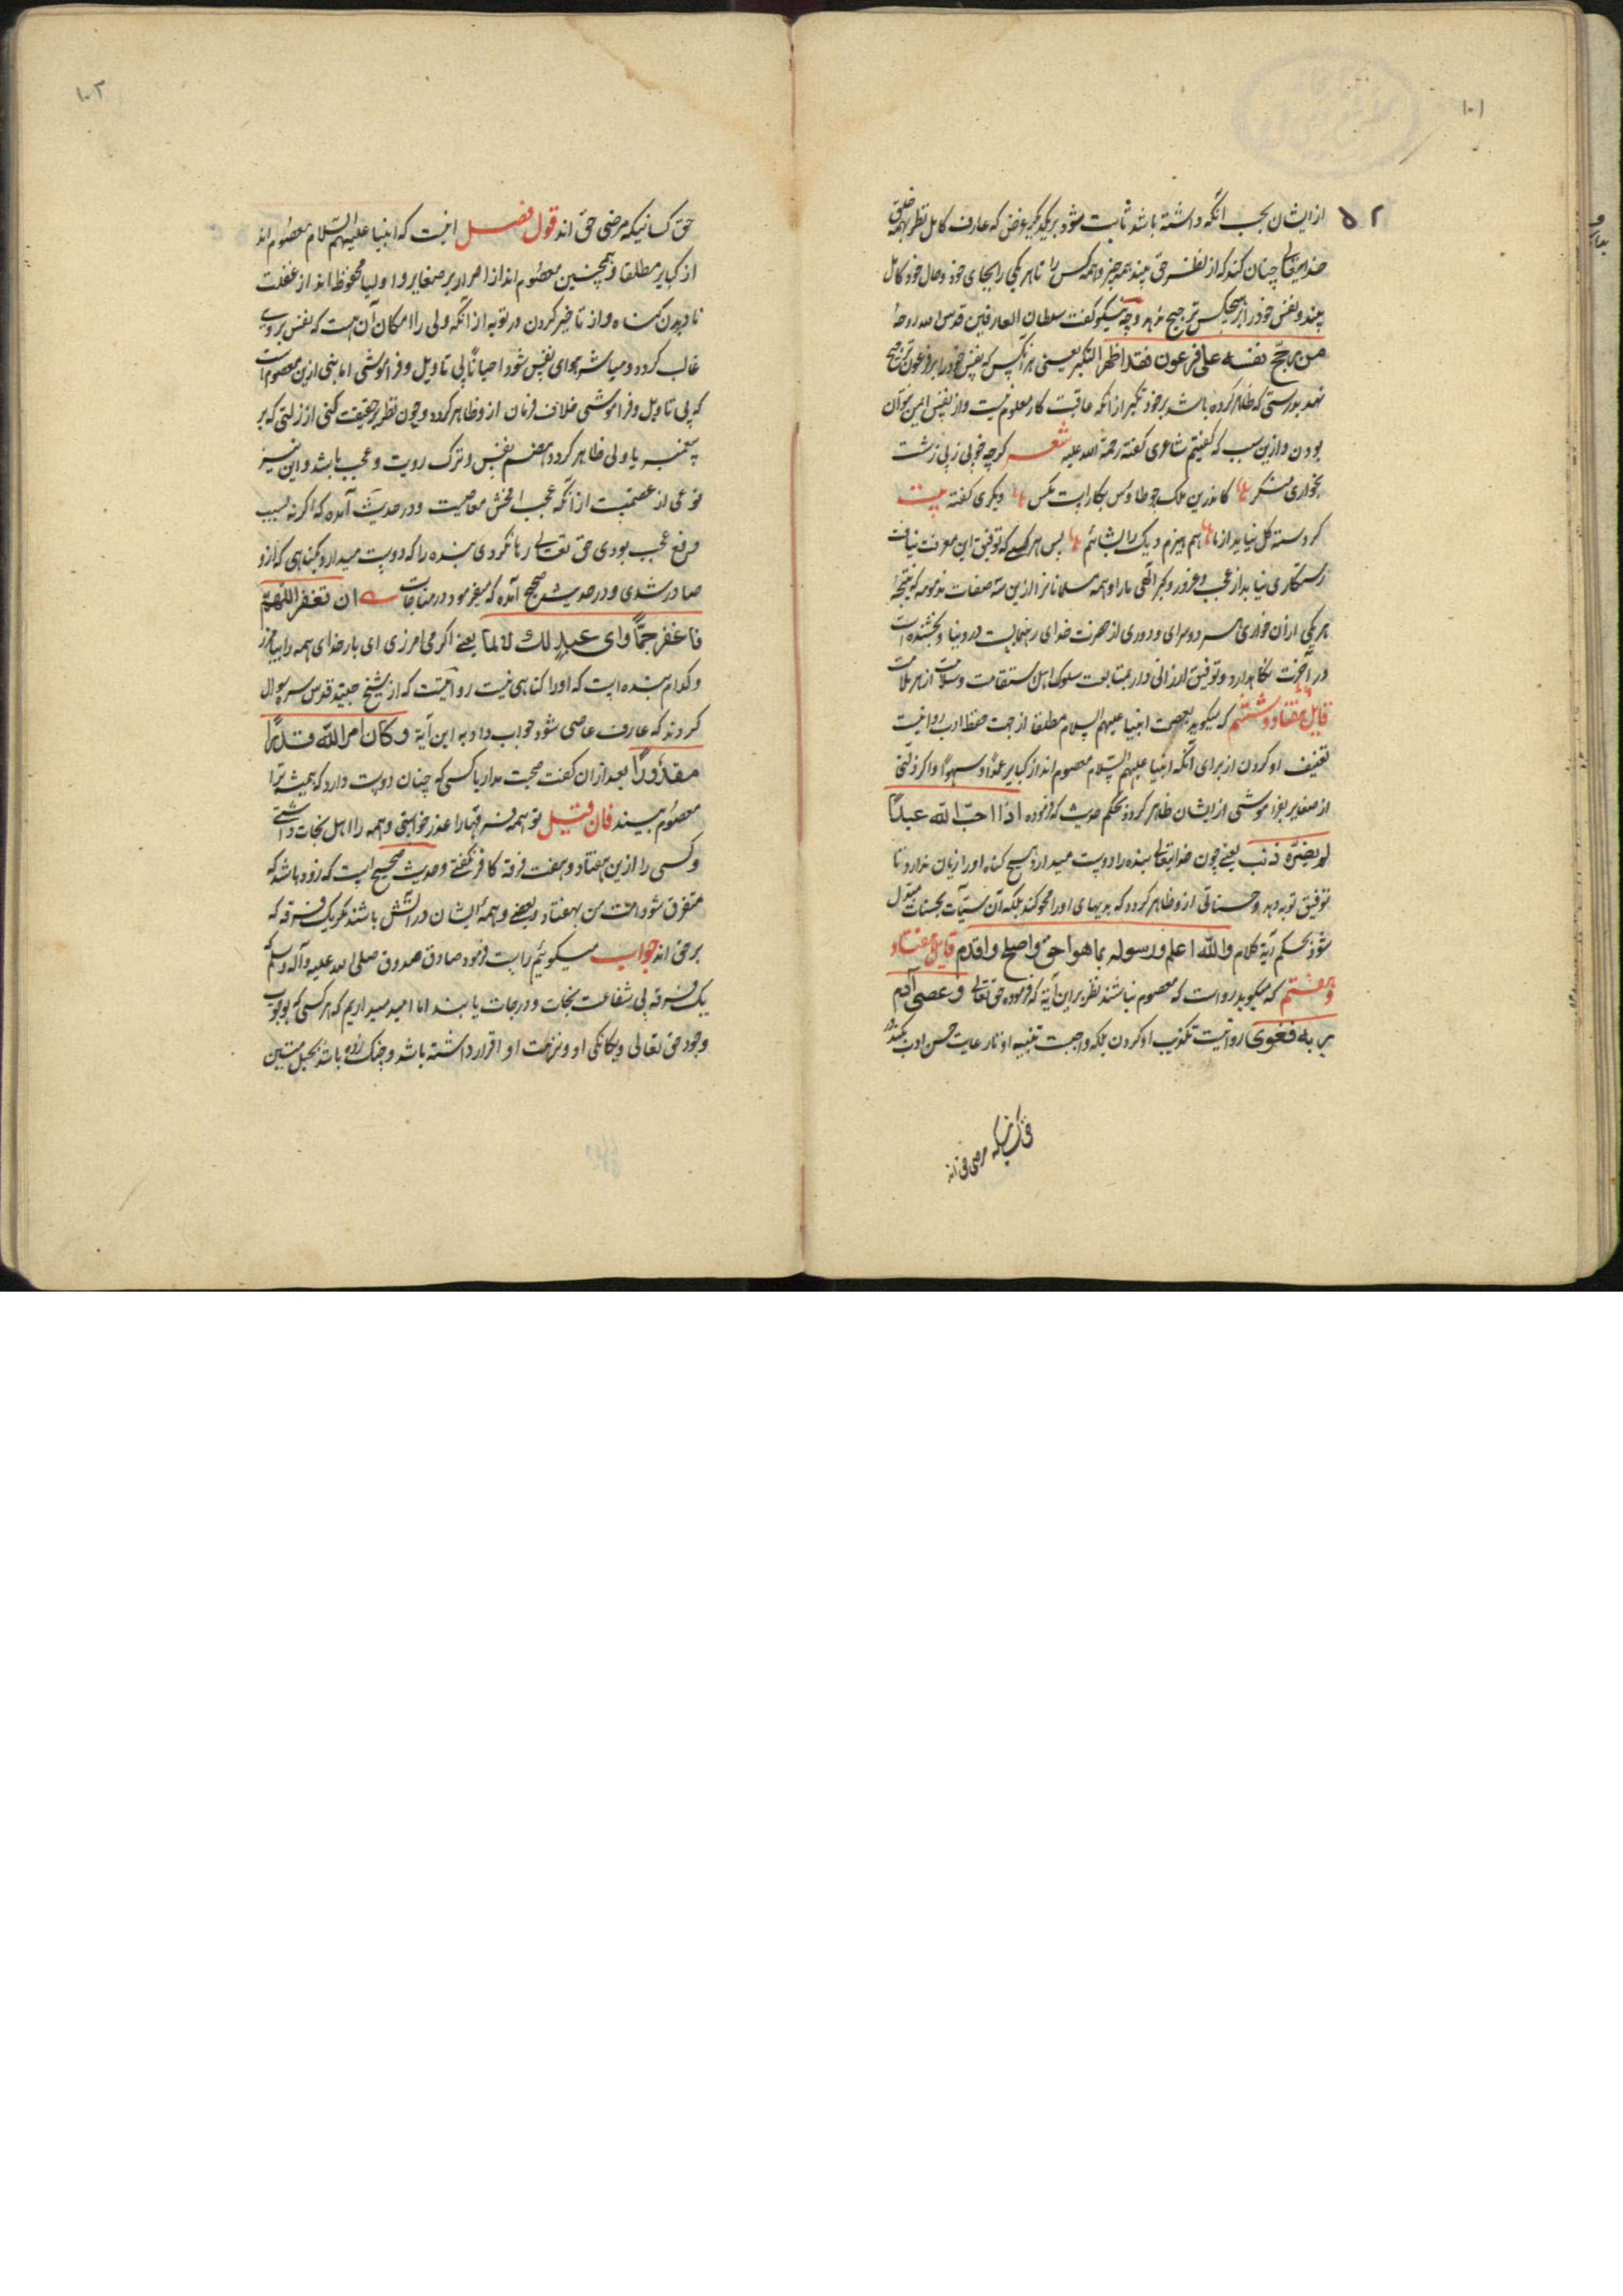 ۱۰۱
۵۲
از ایشان بحسب آنکه داشته باشد ثابت شود بر یکدیگر غرض که عارف کامل نظر بهمه خلق
خدایتعالی چنان کند که از نظر حق بیند همه چیز و همه کس را تا هر یکی را بجای خود و حال خود کامل
بیند و نفس خود را بر هیچکس ترجیح ننهد و چه نیکو گفت سلطان العارفین قدس الله روحه
من رجّح نفسه علی فرعون فقد اظهر التکبر یعنی هر آنکس که نفس خود را بر فرعون ترجیح
نهد بدرستی که ظاهر کرده باشد بر خود تکبر از آنکه عاقبت کار معلوم نیست و از نفس ایمن نتوان
بودن و ازین سبب که گفتیم شاعری گفته رحمة الله علیه شعر کرچه خوبی ز پی زشت
بخواری منکر کاندرین ملک چو طاوس بکارست مگس دیگری گفته بیت
کر دسته گل نیاید از ما هم هیزم دیگ را بشائیم پس هر کسی که توفیق این معرفت نیافت
رستکاری نیابد از عجب و غرور و کبر الهی ما را و همه مسلمانانرا ازین سه صفات مذمومه که نتیجه
هر یکی از آن خواری هر دو سرای و دوری از حضرت خدای رهنماست در دنیا و بخشنده است
در آخرت نکاهدارد و توفیق ارزانی دارد بمتابعت سلوک اهل استقامت و سلامت از هر ملامت
قایل هفتاد و ششم که میکوید بعصمت انبیا علیهم السلام مطلقا از جهت حفظ ادب روا نیست
تعنیف او کردن از برای آنکه انبیا علیهم السّلام معصوم اند از کبایر عمدًا و سهوًا و اکر زلتی
از صغایر بفراموشی از ایشان ظاهر کردد بحکم حدیث که فرموده اذا احبّ الله عبدًا
لم یضرّه ذنب یعنی چون خدایتعالی بنده را دوست میدارد هیچ کناه او را زیان ندارد تا
توفیق توبه دهد و حسناتی از و ظاهر کردد که بدیهای او را محو کند بلکه آن سیّآت بحسنات مبدل
شود بحکم آیة کلام والله اعلم ورسوله بما هو احق واصلح واقدم قایل هفتاد
و هفتم که میکوید رواست که معصوم نباشند نظر برین آیة که فرموده حق تعالی و عصی آدم
ربه فغوی روا نیست تکذیب او کردن بلکه واجبست تنبیه او تا رعایت حسن ادب بکند در
حق کسانیکه مرضی حق اند
۱۰۲
حق کسانیکه مرضی حق اند قول فصل اینست که انبیا علیهم السّلام معصوم اند
از کبایر مطلقا و همچنین معصوم اند از اصرار بر صغایر و اولیا محفوظ اند از غفلت
نا دیدن کناه و از تاخیر کردن در توبه از آنکه ولی را امکان آن هست که نفس بر وی
غالب کردد و مباشر هوای نفس شود احیانًا بی تاویل و فراموشی اما نبی ازین معصوم است
که بی تاویل و فراموشی خلاف فرمان از و ظاهر کردد و چون نظر بر حقیقت کنی از زلتی که بر
پیغمبر یا ولی ظاهر کردد هضم نفس و ترک رویت و عجب باشد و این نیز
نوعی از عصمتست از آنکه عجب افحش معاصیست و در حدیث آمده که اکر نه بسبب
رفع عجب بودی حق تعالی رها نکردی بنده را که دوست میدارد بکناهی که از و
صادر شدی و در حدیث صحیح آمده که میفرمود در مناجات ان تغفر اللهمّ
فاغفر جمًّا وای عبدٍ لک لا الما یعنی اکر می امرزی ای بار خدای همه را بیامرز
و کدام بنده است که او را کناهی نیست روایتست که از شیخ جنید قدس سره سوال
کردند که عارف عاصی شود جواب داد به این آیة وکان امر الله قدرًا
مقدورًا بعد از آن کفت صحبت مدار با کسی که چنان دوست دارد که همیشه ترا
معصوم بیند فان قیل تو همه فرقها را عذر خواستی و همه را اهل نجات داشتی
و کسی را ازین هفتاد و هفت فرقه کافر نکفتی و حدیث صحیح است که زود باشد که
متفرق شود امت من بهفتاد و بعضی و همه ایشان در آتش باشند مکر یک فرقه که
بر حق اند جواب میکوئیم راست فرمود صادق مصدوق صلی الله علیه و آله وسلم
یک فرقه بی شفاعت نجات و درجات یابند اما امید میداریم که هر کسی که بوجوب
وجود حق تعالی و یکانکی او و نزاهت او اقرار داشته باشد و چنک زده باشد بحبل متین